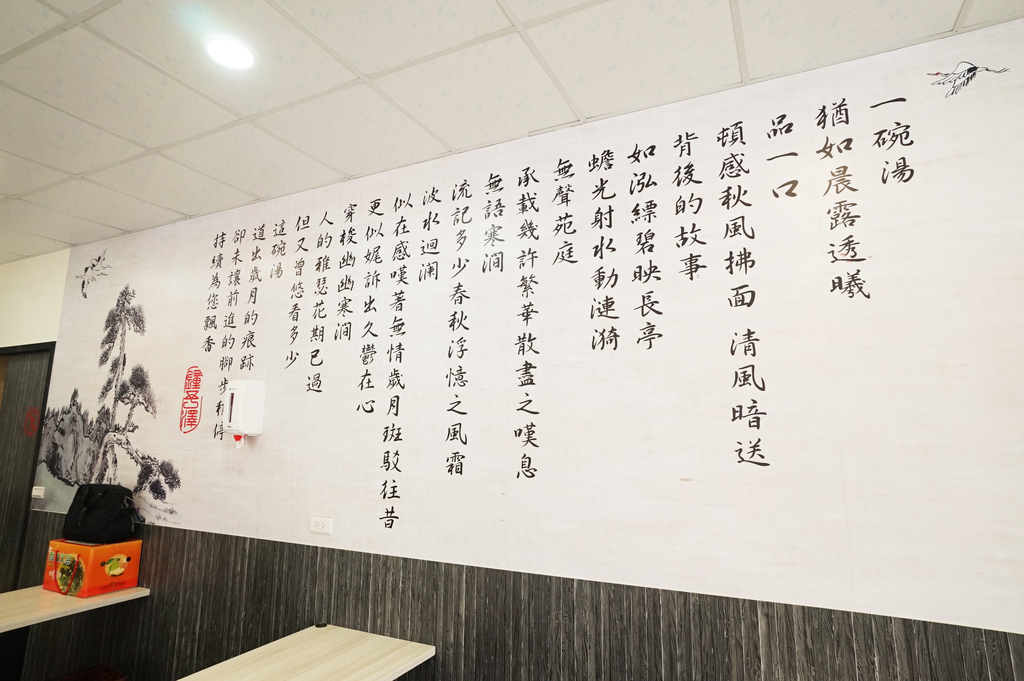 一碗湯
猶如晨露透曦
品一口
頓感秋風拂面 清風暗送
背後的故事
如泓縹碧映長亭
蟾光射水動漣漪
無聲苑庭
承載幾許繁華散盡之嘆息
無語寒澗
流記多少春秋浮憶之風霜
波水迴瀾
似在感嘆著無情歲月斑駁往昔
更似娓訴出久鬱在心
穿梭幽幽寒澗
人的雅瑟花期已過
但又曾悠看多少
這碗湯
道出歲月的痕跡
卻未讓前進的腳步 停
持續為您飄香